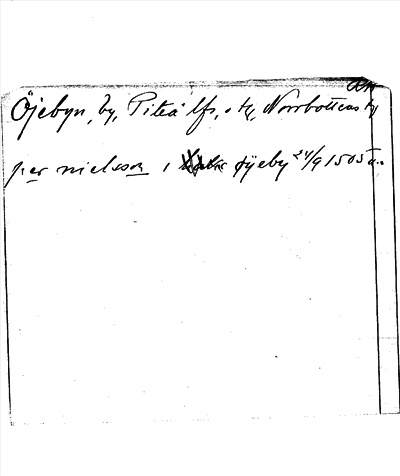 Öjebyn, by, Piteå lfs, o tg, Norrbottens ty
per nielsson i øyeby 24/9 1505